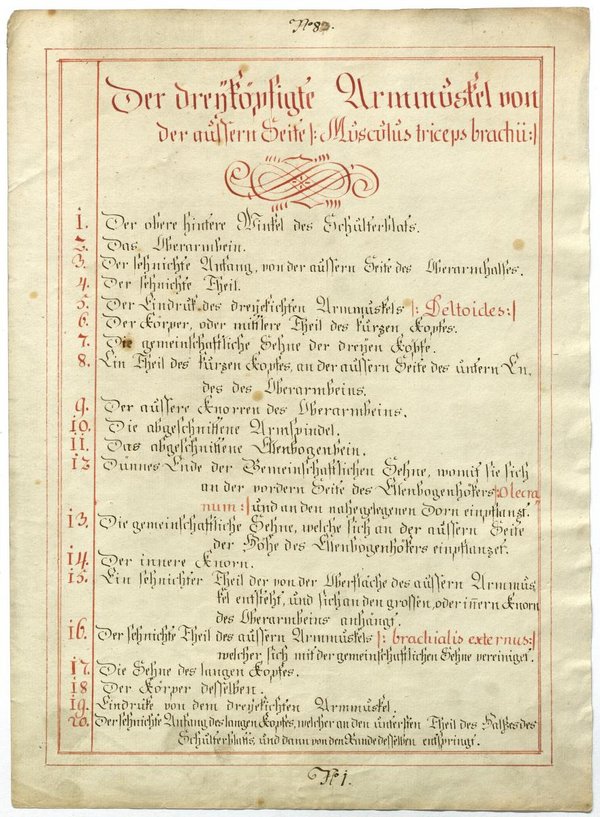 No 8.
Der dreÿköpfigte Armmuskel von
der aüssern Seite |: Musculus triceps brachii :|
1. Der obere hintere Winkel des Schulterblats.
2. Das Oberarmbein.
3. Der sehnichte Anfang, von der aüssern Seite des Oberarmhalses.
4. Der sehnichte Theil.
5. Der Eindruk des dreÿekichten Armmuskels |: Deltoides :|
6. Der Körper, oder mittlere Theil des kurzen Kopfes.
7. Die gemeinschaftliche Sehne der dreÿen Köpfe.
8. Ein Theil des kurzen Kopfes, an der aüssern Seite des untern En,
des des Oberarmbeins.
9. Der aüssere Knorren des Oberarmbeins.
10. Die abgeschnittene Armspindel.
11. Das abgeschnittene Ellenbogenbein.
12 Dünnes Ende der Gemeinschaftlichen Sehne, womit sie sich
an der vordern Seite des Ellenbogenhökers |: Olecra
num :| und an den nahegelegenen Dorn einpflanzt.
13. Die gemeinschaftliche Sehne, welche sich an der aüssern Seite
der Höhe des Ellenbogenhökers einpflanzet.
14. Der innere Knorn.
15. Ein sehnichter Theil der von der Oberfläche des aüssern Armmus,
kel entsteht, und sich an den grossen, oder innern Knorn
des Oberarmbeins anhängt.
16. Der sehnichte Theil des aüssern Armmuskels |: brachialis externus :|
welcher sich mit der gemeinschaftlichen Sehne vereiniget.
17. Die Sehne des langen Kopfes.
18 Der Körper desselben.
19. Eindrüke von dem dreÿekichten Armmuskel.
20. Der sehnichte Anfang des langen Kopfes, welcher an den untersten Theil des Halses des
Schulterblatts, und dann von den Rande desselben entspringt.
No 1.